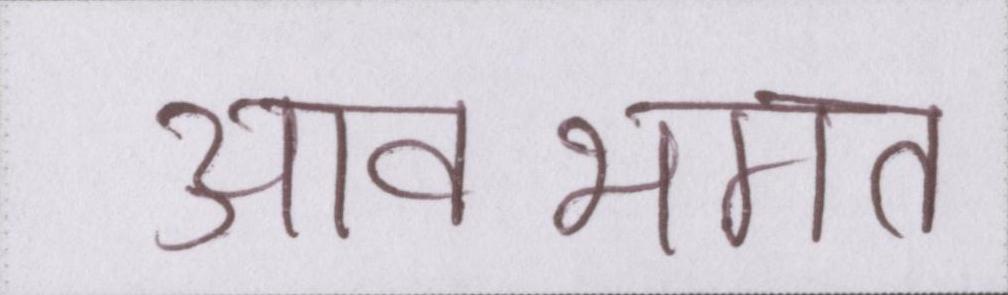 आव भगत